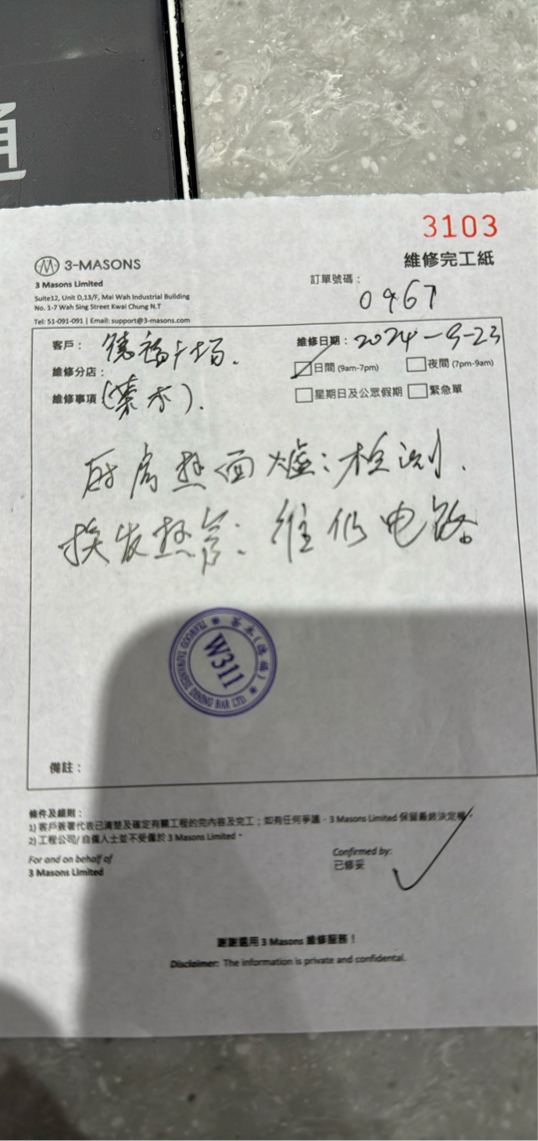 通
3103
3-MASONS
維修完工紙
3 Masons Limited
訂單號碼：
0967
Suite12, Unit D,13/F, Mai Wah Industrial Building
No. 1-7 Wah Sing Street Kwai Chung N.T
Tel: 51-091-091 | Email: support@3-masons.com
客戶： 德福广场.
維修日期： 2024-9-23
日間 (9am-7pm) 夜間 (7pm-9am)
維修分店：
星期日及公眾假期 緊急單
維修事項 (茶木).
厨房热面爐：检测.
换发热管. 维修电路
W311
備註：
條件及細則：
1) 客戶簽署代表已清楚及確定有關工程的完內容及完工；如有任何爭議，3 Masons Limited 保留最終決定權。
2) 工程公司/自僱人士並不受僱於 3 Masons Limited。
For and on behalf of
3 Masons Limited
Confirmed by:
已修妥
謝謝選用 3 Masons 維修服務！
Disclaimer: The information is private and confidental.